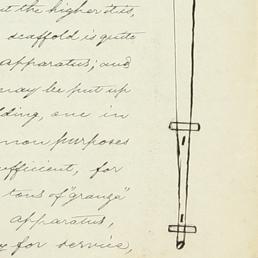 ut the higher it is,
scaffold is quite
apparatus; and
may be put up
lding, one in
mon purposes
ufficient, for
tons of "grange"
apparatus,
y for service,